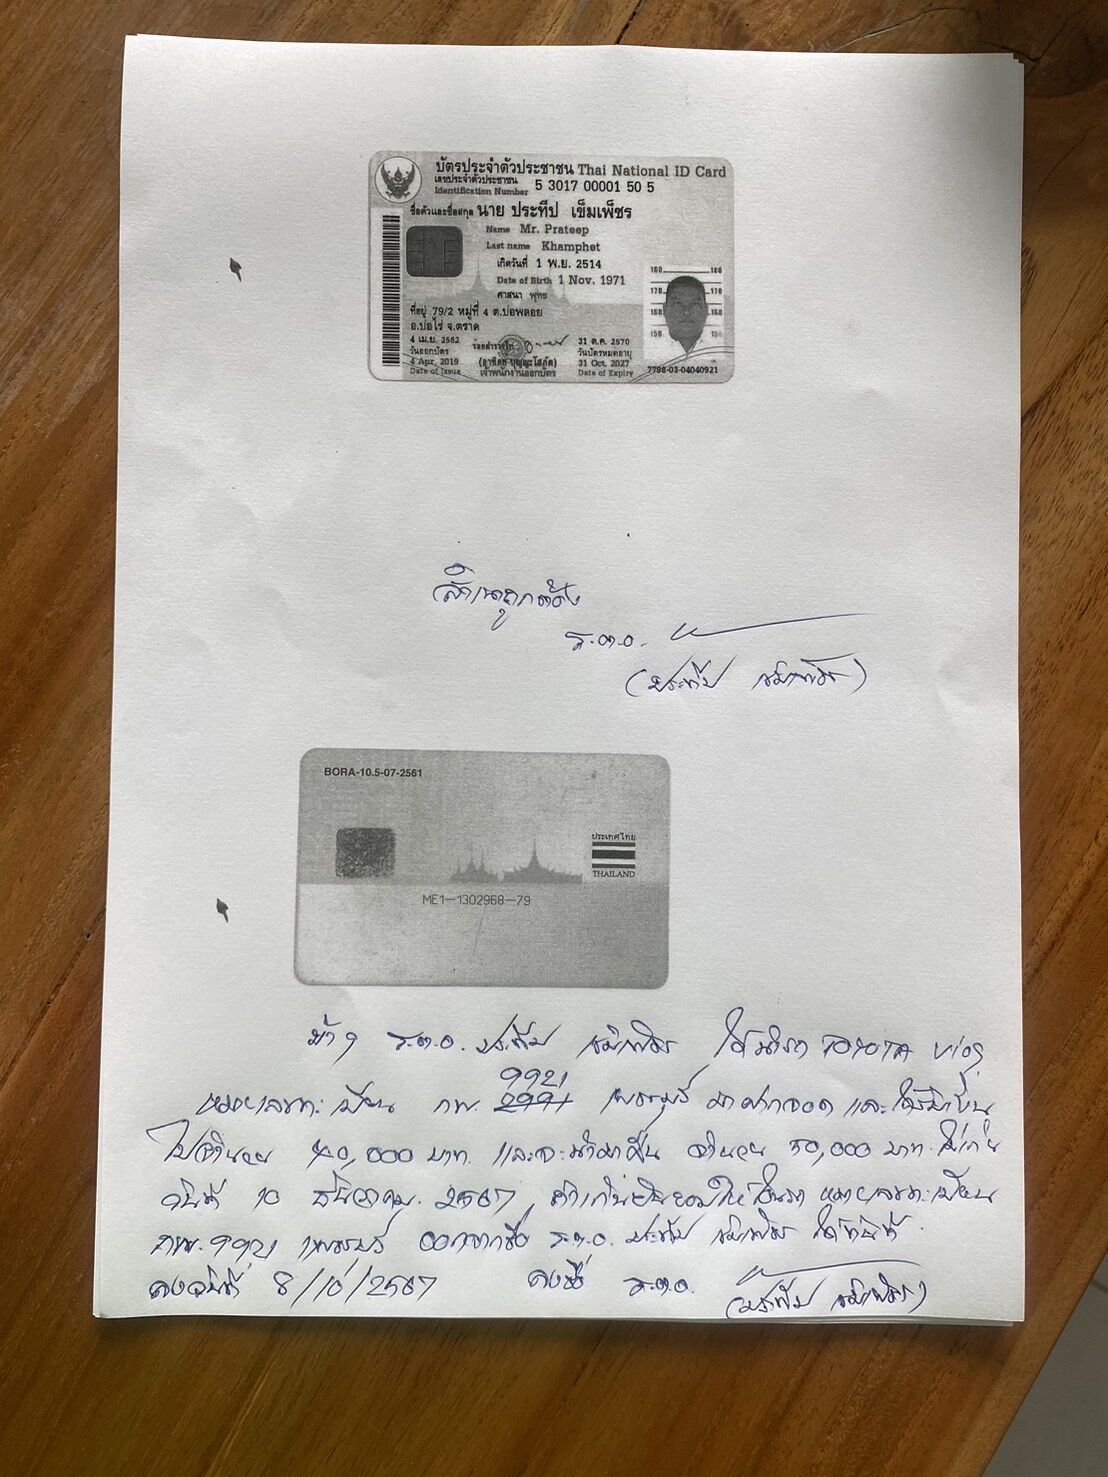 บัตรประจำตัวประชาชน Thai National ID Card
เลขประจำตัวประชาชน
Identification Number 5 3017 00001 50 5
ชื่อตัวและชื่อสกุล นาย ประทีป เข็มเพ็ชร
Name Mr. Prateep
Last name Khamphet
เกิดวันที่ 1 พ.ย. 2514
Date of Birth 1 Nov. 1971
ศาสนา พุทธ
ที่อยู่ 79/2 หมู่ที่ 4 ต.บ่อพลอย
อ.บ่อไร่ จ.ตราด
4 เม.ย. 2562
วันออกบัตร
4 Apr. 2019
Date of Issue
เจ้าพนักงานออกบัตร
31 ต.ค. 2570
วันบัตรหมดอายุ
31 Oct. 2027
Date of Expiry
180 180
170 170
160 160
150 150
7798-03-04040921
สำเนาถูกต้อง
ร.ต.อ.
(ประทีป เข็มเพ็ชร)
BORA-10.5-07-2561
ประเทศไทย
THAILAND
ME1-1302968-79
ข้าฯ ร.ต.อ. ประทีป เข็มเพ็ชร ได้นำรถ TOYOTA Vios
9921
หมายเลขทะเบียน กพ. เพชรบุรี มาฝากจอด และได้ยืมเงิน
ไปจำนวน 40,000 บาท และจะนำมาคืน จำนวน 50,000 บาท ไม่เกิน
วันที่ 10 ธันวาคม 2567 ถ้าเกินยินยอมให้โอนรถ หมายเลขทะเบียน
กพ. 9921 เพชรบุรี ออกจากชื่อ ร.ต.อ. ประทีป เข็มเพ็ชร ได้ทันที
ลงวันที่ 8/10/2567 ลงชื่อ ร.ต.อ.
(ประทีป เข็มเพ็ชร)